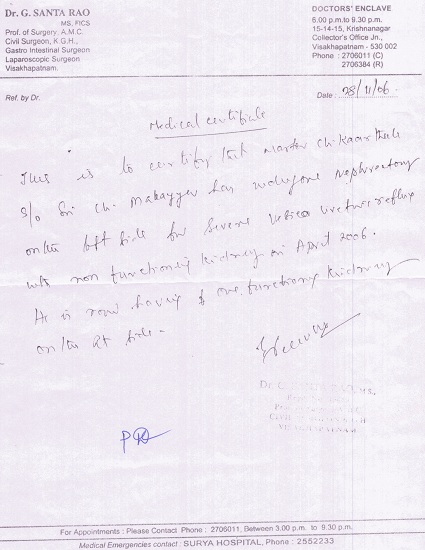 Dr. G. SANTA RAO
MS, FICS
Prof. of Surgery, A.M.C.
Civil Surgeon, K.G.H.,
Gastro Intestinal Surgeon
Laparoscopic Surgeon
Visakhapatnam.
DOCTORS' ENCLAVE
6.00 p.m.to 9.30 p.m.
15-14-15, Krishnanagar
Collector's Office Jn.,
Visakhapatnam - 530 002
Phone : 2706011 (C)
2706384 (R)
Ref. by Dr.
Date : 28/11/06.
Medical certificate
This is to certify that master
S/o Sri Ch. has undergone nephrectomy
on the left side for severe vesico ureteric reflux
with non functioning kidney on April 2006.
He is now having one functioning kidney
on the Rt side.
Dr. G. SANTA RAO, MS.,
For Appointments : Please Contact Phone : 2706011, Between 3.00 p.m. to 9.30 p.m.
Medical Emergencies contact : SURYA HOSPITAL, Phone : 2552233